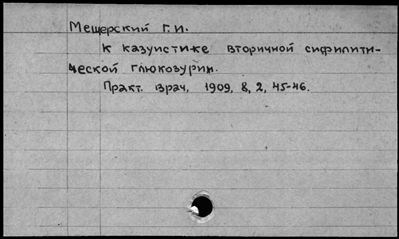 Мещерский Г.И.
К казуистике вторичной сифилити-
ческой глюкозурии.
Практ. врач, 1909, 8, 2, 45-46.